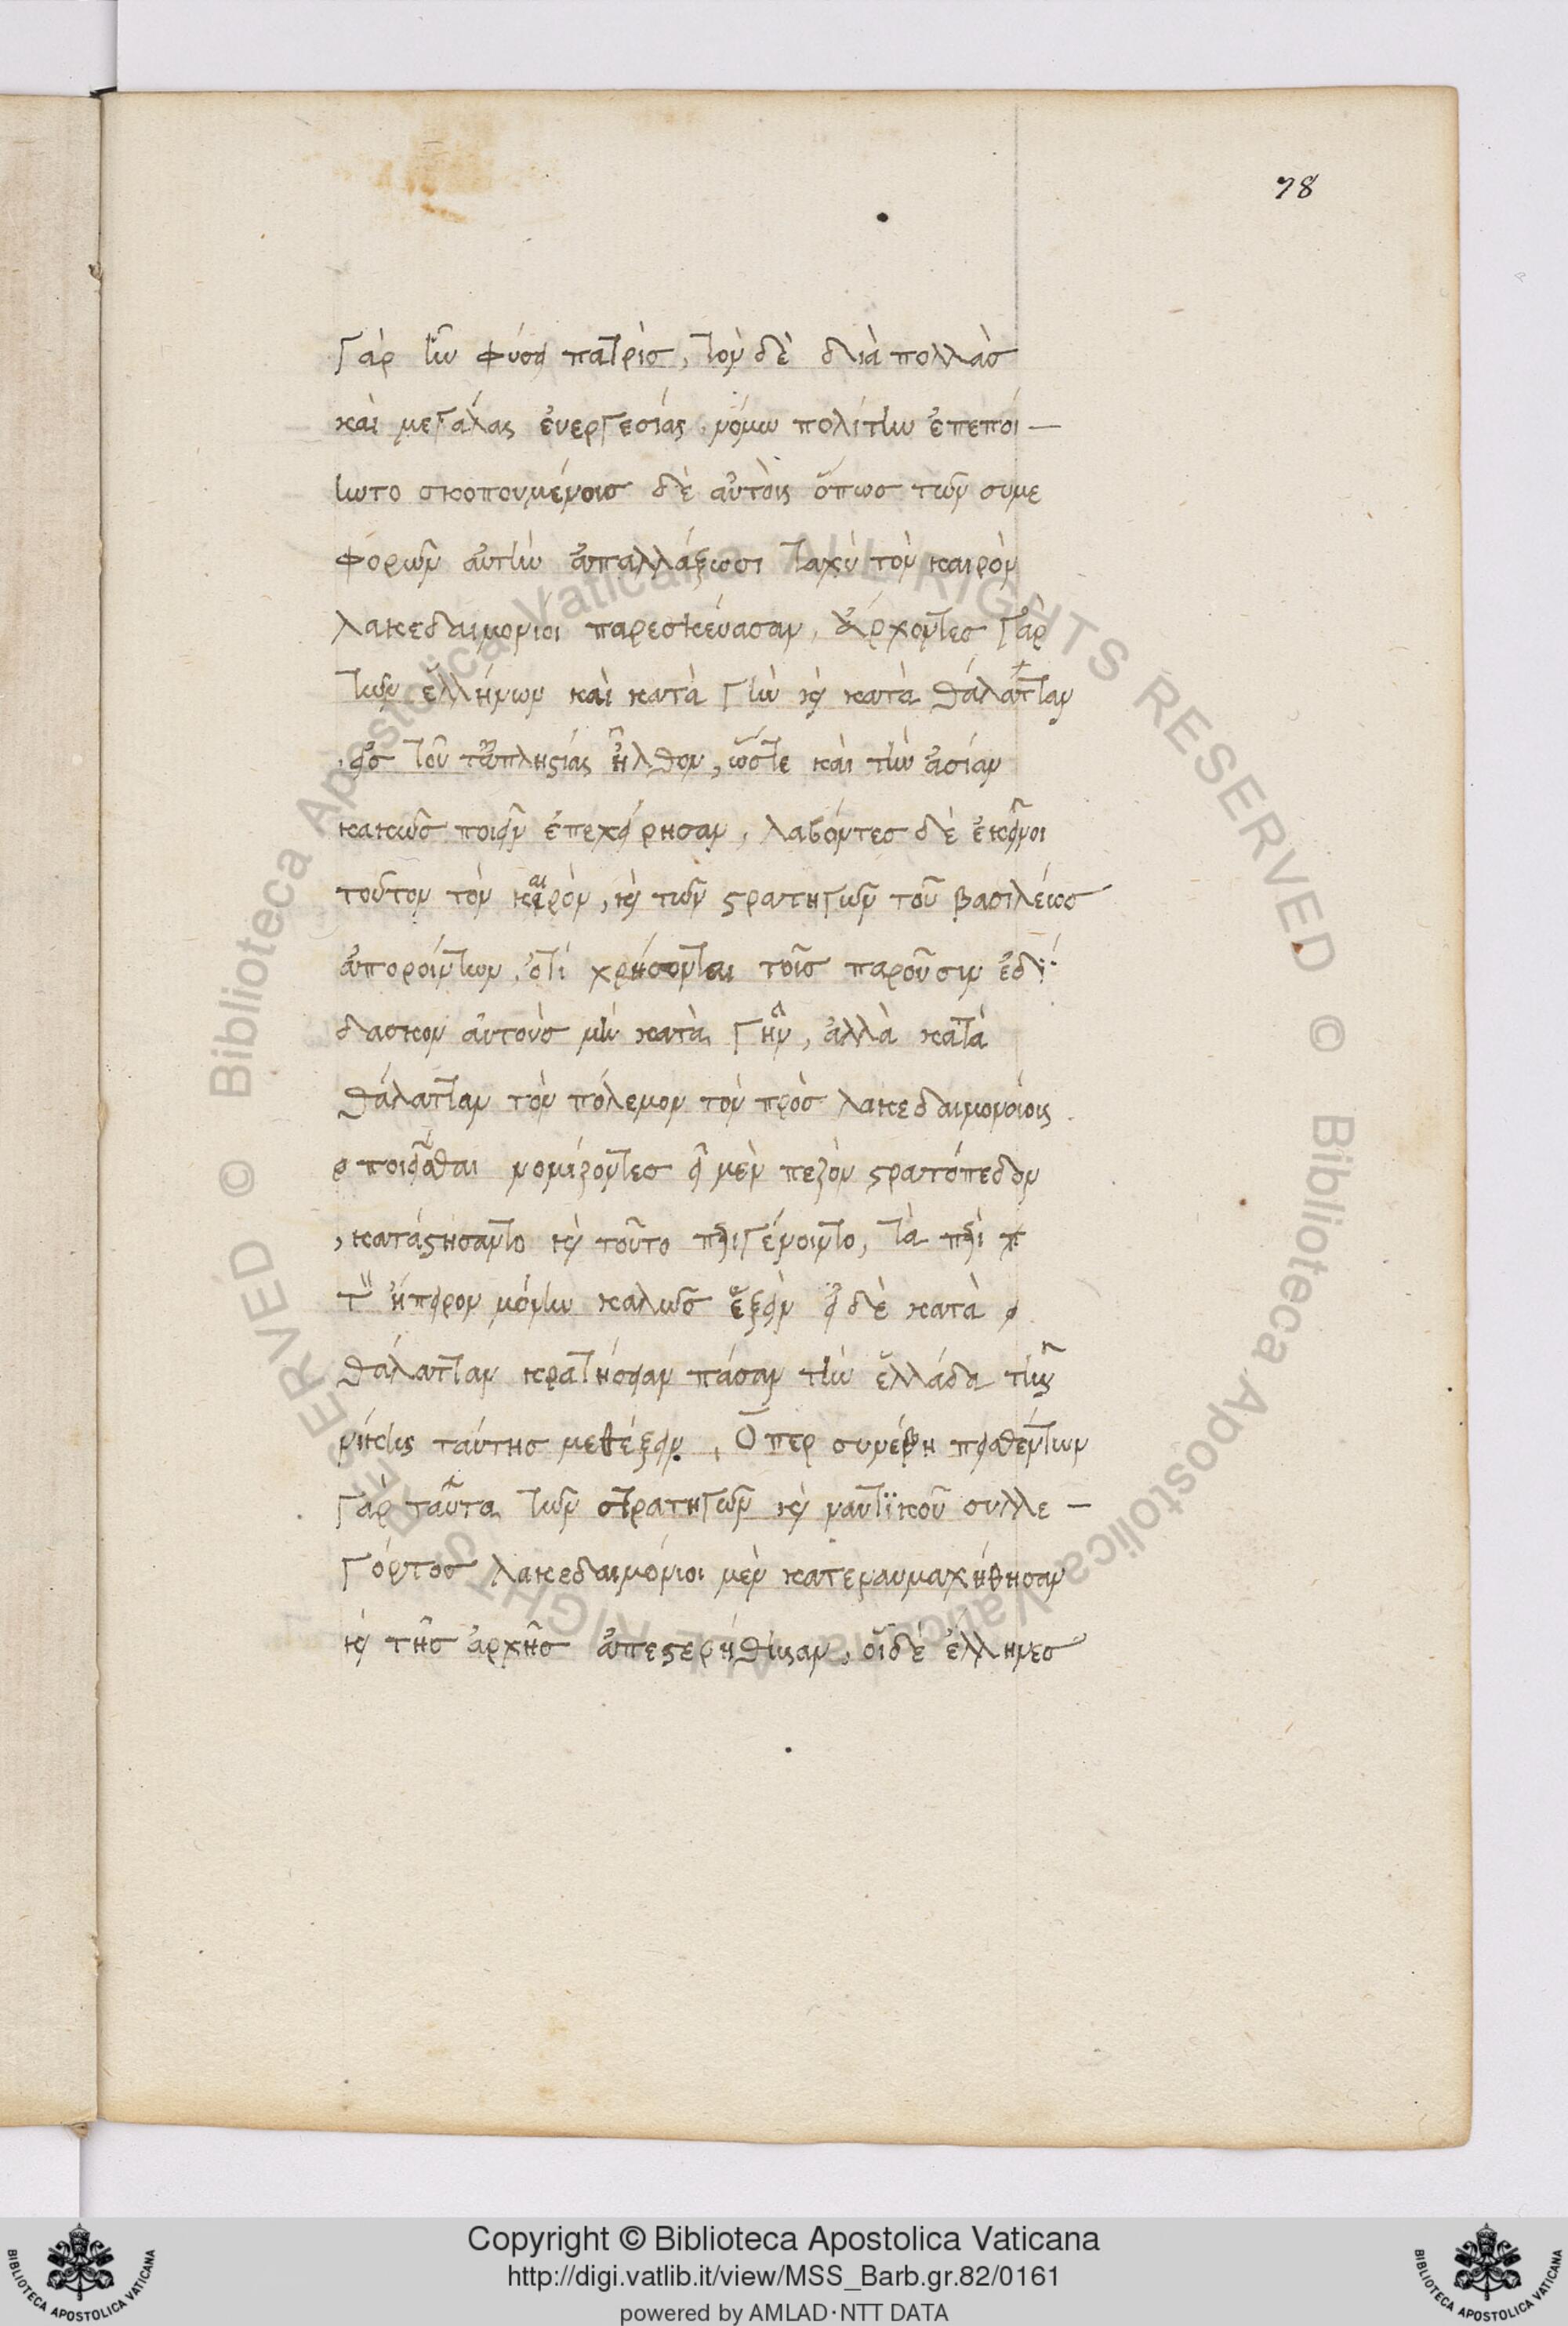 78
γὰρ ἦν φύσει πατρὶς, τὸν δὲ διὰ πολλὰς
καὶ μεγάλας ἐυεργεσίας νόμω πολίτην ἐπεποί-
ηντο σκοπουμένοις δὲ αὐτοῖς ὅπως τῶν συμ
φορῶν αὐτὴν ἀπαλλάξωσι ταχὺ τὸν καιρὸν
λακεδαιμονιοι παρεσκέυασαν, ἄρχοντες γὰρ
τῶν ἑλλήνων καὶ κατὰ γὴν κὶ κατὰ θάλατταν
εἰς τοῦτ' ἀπληστίας ἦλθον, ὥστε καὶ τὴν ἀσίαν
κακῶς ποιεῖν ἐπεχείρησαν, λαβόντες δὲ ἐκεῖνοι
τοῦτον τὸν καιρὸν, κὶ τῶν στρατηγῶν τοῦ βασιλέως
ἀποροίντων, ὅτι χρήσονται τοῖς παροῦσιν ἐδί
δασκον ἀυτοὺς μὴ κατὰ γῆν, ἀλλὰ κατὰ
θάλατταν τὸν πόλεμον τὸν πρὸς λακεδαιμονίοις
ποιεῖσθαι νομίζοντες εἰ μὲν πεζὸν στρατόπεδον
κατάστησαντο κὶ τοῦτο περιγένοιντο, τὰ περὶ
τὴν ἤπειρον μόνην καλῶς ἕξειν εἰ δὲ κατὰ
θάλατταν κρατήσειαν πάσαν τὴν ἑλλάδα τῆς
νίκης ταύτης μεθέξειν. Ὅπερ συνέβη πεισθέντων
γὰρ ταῦτα τῶν στρατηγῶν κὶ ναυτϊκοῦ συλλε-
γόντος λακεδαιμόνιοι μὲν κατεναυμαχήθησαν
κὶ τῆς ἀρχῆς ἀπεστερήθησαν, οἱ δὲ ἑλληνες
Copyright © Biblioteca Apostolica Vaticana
http://digi.vatlib.it/view/MSS_Barb.gr.82/0161
powered by AMLAD·NTT DATA